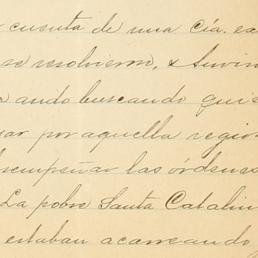 cuenta de una cía. ex
se resolvieron, &
ando buscando qui
ar por aquella region
empeñar las órdenes
La pobre Santa Catalin
estaban acarreando